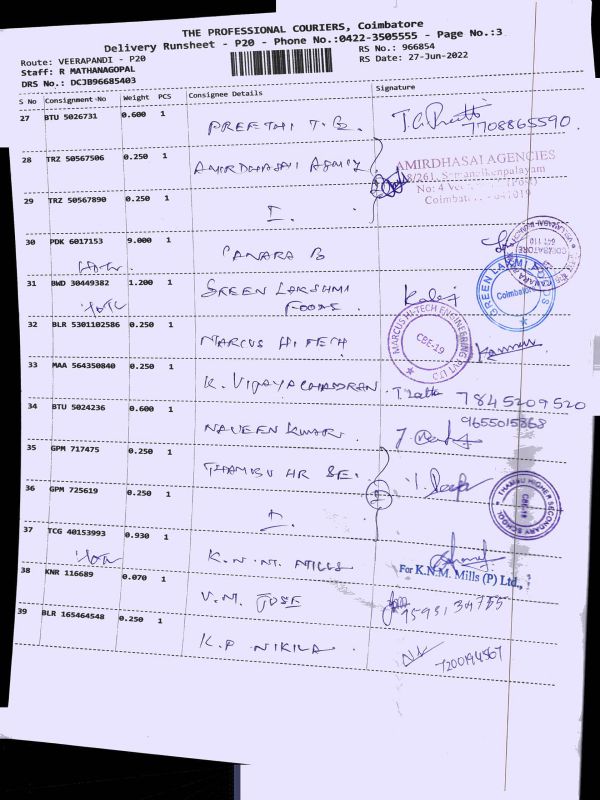 THE PROFESSIONAL COURIERS, Coimbatore
Delivery Runsheet - P20 - Phone No.:0422-3505555 - Page No.:3
Route: VEERAPANDI - P20
Staff: R MATHANAGOPAL
DRS No.: DCJB96685403
RS No.: 966854
RS Date: 27-Jun-2022
S No Consignment No Weight PCS Consignee Details Signature
27 BTU 5026731 0.600 1
PREETHI T.G. 7708865590.
28 TRZ 50567506 0.250 1
AMIRDHASAI AGENCIES
No: 4
29 TRZ 50567890 0.250 1
Coimbatore
30 PDK 6017153 9.000 1
CANARA B
COIMBATORE
641 110
31 BWD 30449382 1.200 1
GREEN LAKSHMI
FOODS.
GREEN LAKSHMI
Coimbatore
32 BLR 5301102586 0.250 1
MARCUS HITECH
MARCUS HI-TECH ENGINEERING PVT LTD
CBE-19
33 MAA 564350840 0.250 1
K. VIJAYACHANDRAN. 7845209520
34 BTU 5024236 0.600 1
9655015868
NAVEEN KUMAR.
35 GPM 717475 0.250 1
THAMBU HR SE.
36 GPM 725619 0.250 1
THAMBU HIGHER SECONDARY SCHOOL
CBE-19
37 TCG 40153993 0.930 1
K.N.M. MILLS
For K.N.M. Mills (P) Ltd.,
38 KNR 116689 0.070 1
V.M. JOSE
39 BLR 165464548 0.250 1
K.P NIKILA.